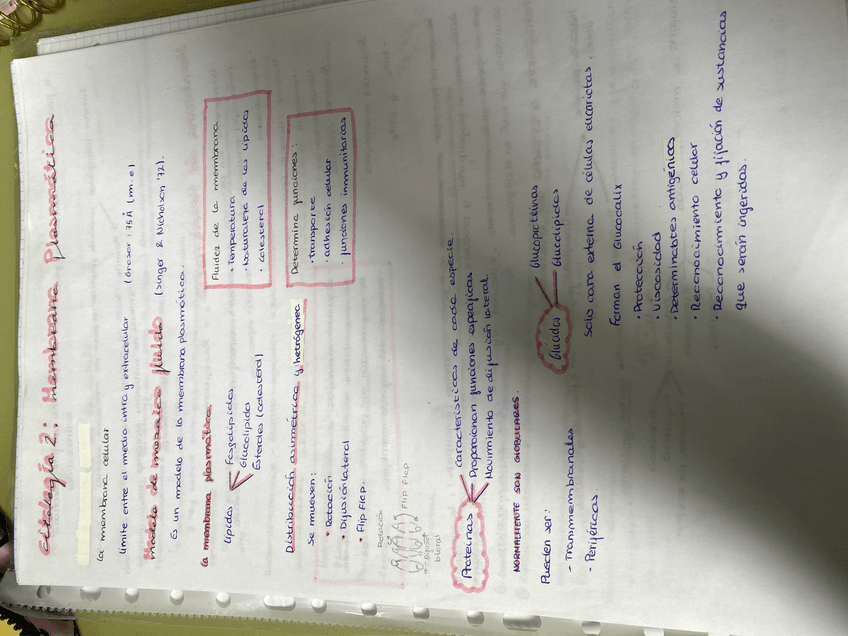 Citología 2: Membrana Plasmática
La membrana celular
Límite entre el medio intra y extracelular (Grosor: 75Å (m.e)
Modelo de mosaico fluido (Singer & Nicholson '72).
Es un modelo de la membrana plasmática.
La membrana plasmática
Lípidos
Fosfolípidos
Glucolípidos
Esteroles (colesterol)
Fluidez de la membrana
· Temperatura
· Naturaleza de los lípidos
· colesterol
Distribución asimétrica y hetrógenea
Se mueven:
· Rotación
· Difusión lateral
· Flip Flop.
Determina funciones:
· transporte
· adhesión celular
· funciones inmunitarias
Rotación
Flip Flop
Proteínas
Características de cada especie.
Proporcionan funciones específicas
Movimiento de difusión lateral.
NORMALMENTE SON GLOBULARES.
Pueden ser:
- Transmembranales
- Periféricas
Glúcidos
Glucoproteínas
Glucolípidos
Solo cara externa de células eucariotas.
Forman el Glucocálix
· Protección
· Viscosidad
· Determinantes antigénicos
· Reconocimiento celular
· Reconocimiento y fijación de sustancias
que serán ingeridas.